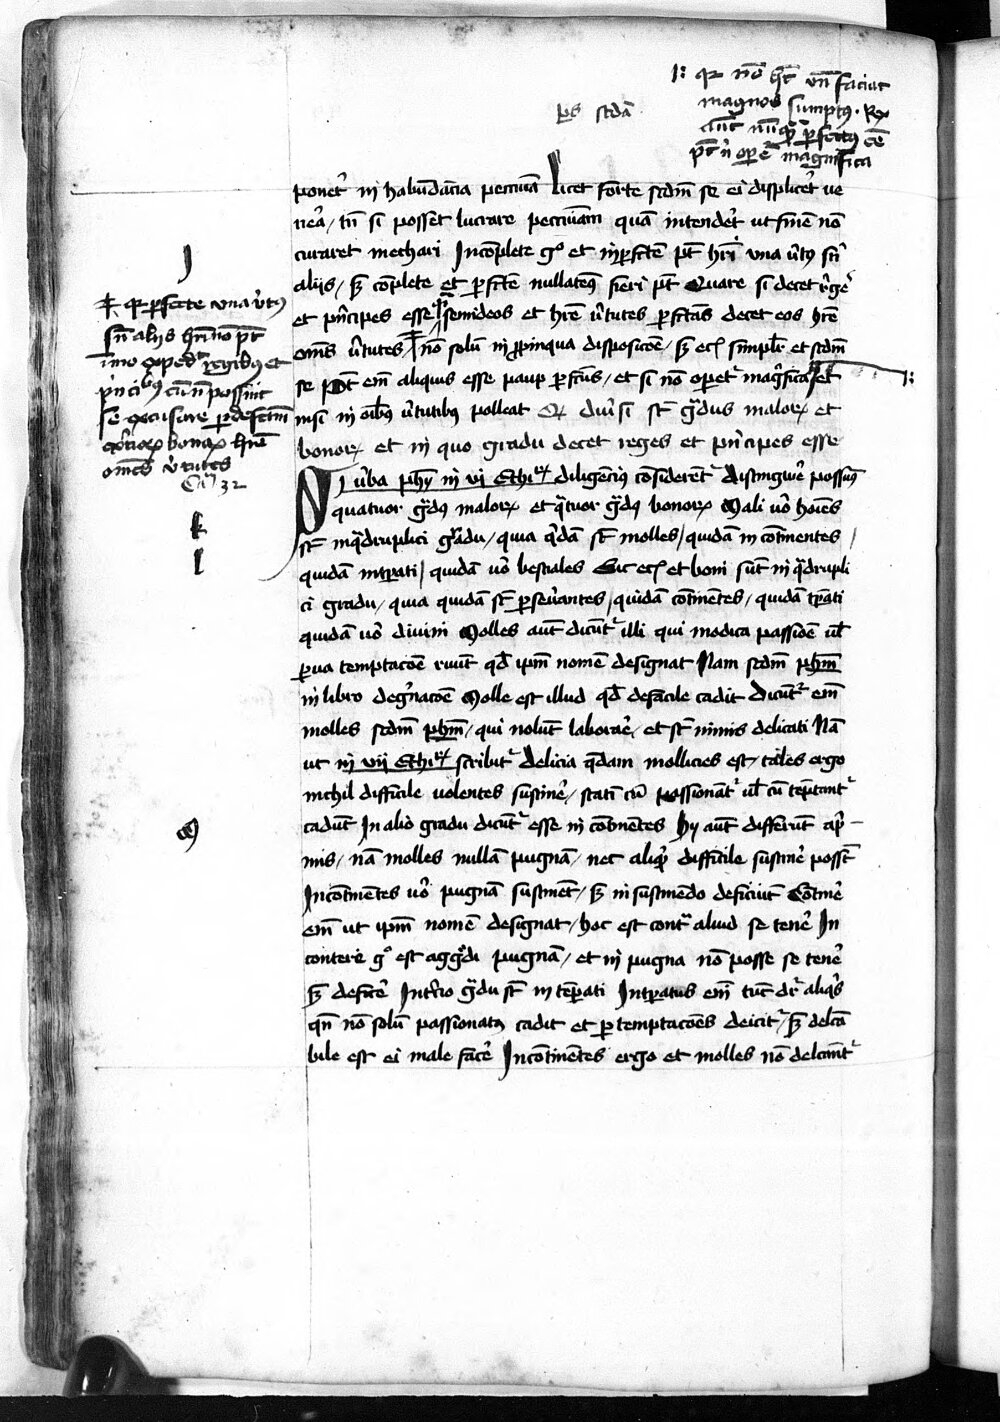 ps scda
I: qr nō hēt vn̄ faciat
magnos sumptus. Rex
aūt nūqᷓ perfectus ēē
pōt n̄ opera magnifica
ponet in habundācia peccūia Licet forte scdm se ei displicet ve
nea / tn̄ si posset lucrare peccūiam quā intendet ut finē nō
curaret mechari Incōplete gͦ et inperfcte pōt hrī una v̄tus sn̄
alijs / sꝫ cōplete et perfcte nullateꝰ fieri pōt Quare si decet rēges
et pn̄cipes esse qᷓsi semideos et hrē v̄tutes perfctas decet eos hrē
oms v̄tutes nō solū in ꝓpinqua disposicōe / sꝫ ecī simplr et scdm
se Pōt em̄ aliquis esse paup perfctus / et si nō operet magͥfica et
nisi in oībꝰ v̄tutibꝰ polleat Qꝛ diu̇si st̄ gᷓdus maloꝝ et
bonoꝝ et in quo gradu decet reges et pn̄cipes esse
Si v̄ba phy in vj Ethicꝝ diligenciꝰ cōsiderent Distingwe possumꝰ
quatuor gᷓdus maloꝝ et qᷓtuor gᷓdꝰ bonoꝝ Mali u̇o hoīes
st̄ in qᷓdruplici gradu / quia qͥdā st̄ molles / quidā incōtinentes /
quidā intꝑati / quidā u̇o bestiales Sic ecī et boni sūt in qᷓdrupli
ci gradu / quia quidā st̄ perseu̇antes / quidā cōtinētes / quidā tꝑati
quidā u̇o diuini Molles aūt dicūt illi qui modica passiōe ul̄
parua temptacōe ruūt qd̄ ipm̄ nomē designat Nam scdm phm̄
in libro degn̄acōe Molle est illud qd̄ defacile cadit Dicūt em̄
molles scdm phm̄ / qui nolūt laborare / et st̄ nimis delicati Nā
ut in vij Ethicꝝ scribit delicia qᷓdam mollicies est / tales ergo
nichil difficile volentes sustinē / statī cū passionāt ul̄ cū tēptant
cadūt In alio gradu dicūt esse in cōtinētes hy aūt differūt a pͥ-
mis / nā molles nullā pugnā / nec aliqͥd difficile sustinē possūt
Incōtinētes u̇o pugnā sustinēt / sꝫ in sustinēdo deficiūt Cōtinē
em̄ ut ipm̄ nomē designat / hoc est contᷓ aliud se tenē In
continere gͦ est aggᷓdi pugnā / et in pugna nō posse se tenē
sꝫ deficē In t̄cio gᷓdu st̄ intēꝑati Intꝑatus em̄ tūc dr̄ aliqͥs
qn̄ nō solū passionatꝰ cadit et per temptacōes deicit / sꝫ delca
bile est ei male facē Incōtinentes ergo et molles nō delcāt
J
ꝙ perfecte una v̄tus
sn̄ alijs hrī nō pōt
īmo expedit regibus et
pn̄cibꝰ cū n̄ possint
se excusare per defectum
exterioꝝ bonoꝝ hrē
omēs v̄tutes
Ca 32
k
l
m
I: